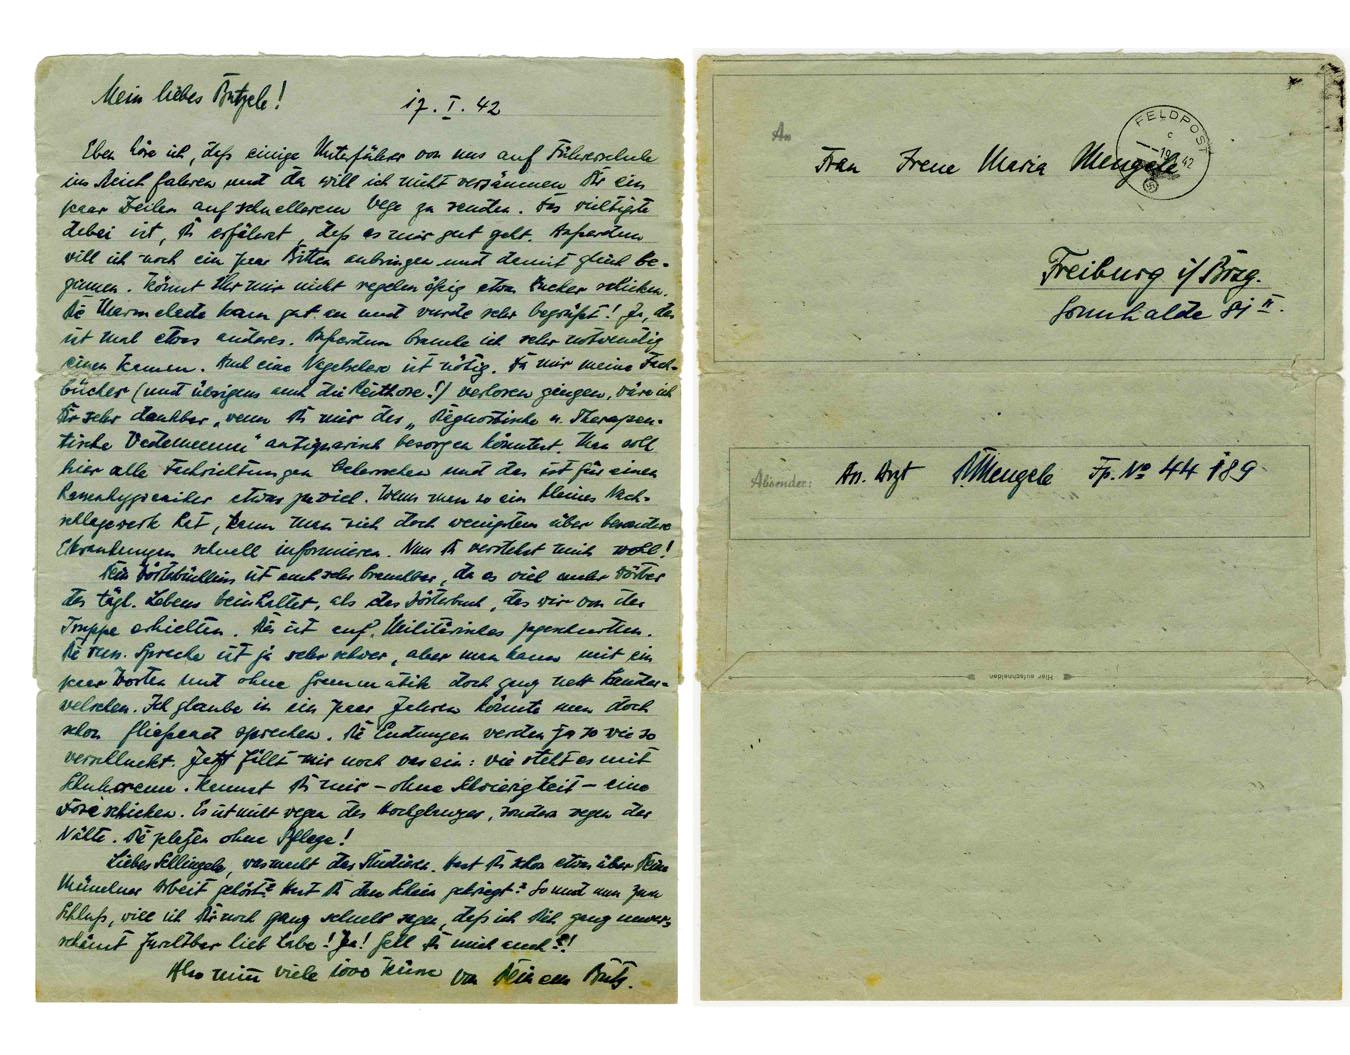 Mein liebes Butzele!
17. I. 42
Eben höre ich, daß einige Unterführer von uns auf Führerschule
ins Reich fahren und da will ich nicht versäumen Dir ein
paar Zeilen auf schnellerem Wege zu senden. Das wichtigste
dabei ist, Du erfährst, daß es mir gut geht. Außerdem
will ich noch ein paar Bitten anbringen und damit gleich be-
ginnen. Könnt Ihr mir nicht regelmäßig etwas Zucker schicken.
Die Marmelade kam gut an und wurde sehr begrüßt! Ja, das
ist mal etwas anderes. Außerdem brauche ich sehr notwendig
einen Kamm. Auch eine Nagelschere ist nötig. Da mir meine Fach-
bücher (und übrigens auch die Reithose!) verloren gingen, wäre ich
Dir sehr dankbar, wenn Du mir das „Diagnostische u. Therapeu-
tische Vademecum" antiquarisch besorgen könntest. Man soll
hier alle Fachrichtungen beherrschen und das ist für einen
Rassenhygieniker etwas zuviel. Wenn man so ein kleines Nach-
schlagewerk hat, kann man sich doch wenigstens über besondere
Erkrankungen schnell informieren. Nun Du verstehst mich wohl!
Dein Wörterbüchlein ist auch sehr brauchbar, da es viel mehr Wörter
des tägl. Lebens beinhaltet, als das Wörterbuch, das wir von der
Truppe erhielten. Das ist auf Militärisches zugeschnitten.
Die russ. Sprache ist ja sehr schwer, aber man kann mit ein
paar Worten und ohne Grammatik doch ganz nett kauder-
welschen. Ich glaube in ein paar Jahren könnte man doch
schon fließend sprechen. Die Endungen werden ja so wie so
verschluckt. Jetzt fällt mir noch was ein: wie steht es mit
Schuhcreme. Kannst Du mir – ohne Schwierigkeit – eine
Dose schicken. Es ist nicht wegen des Hochglanzes, sondern wegen der
Nähte. Die platzen ohne Pflege!
Liebes Schlingele, was macht das Studium. Hast Du schon etwas über Deine
Münchner Arbeit gehört? Hast Du den Schein gekriegt? So und nun zum
Schluß, will ich Dir noch ganz schnell sagen, daß ich Dich ganz unver-
schämt furchtbar lieb habe! Ja! Gell Du mich auch?!
Also nun viele 1000 Küsse von Deinem Butz.
An
Frau Irene Maria Mengele
FELDPOST
c
19.1.42
Freiburg i/Brsg.
Sonnhalde 81 II.
Absender:
Ass. Arzt Dr. Mengele Fp. No 44 189
Hier aufschneiden